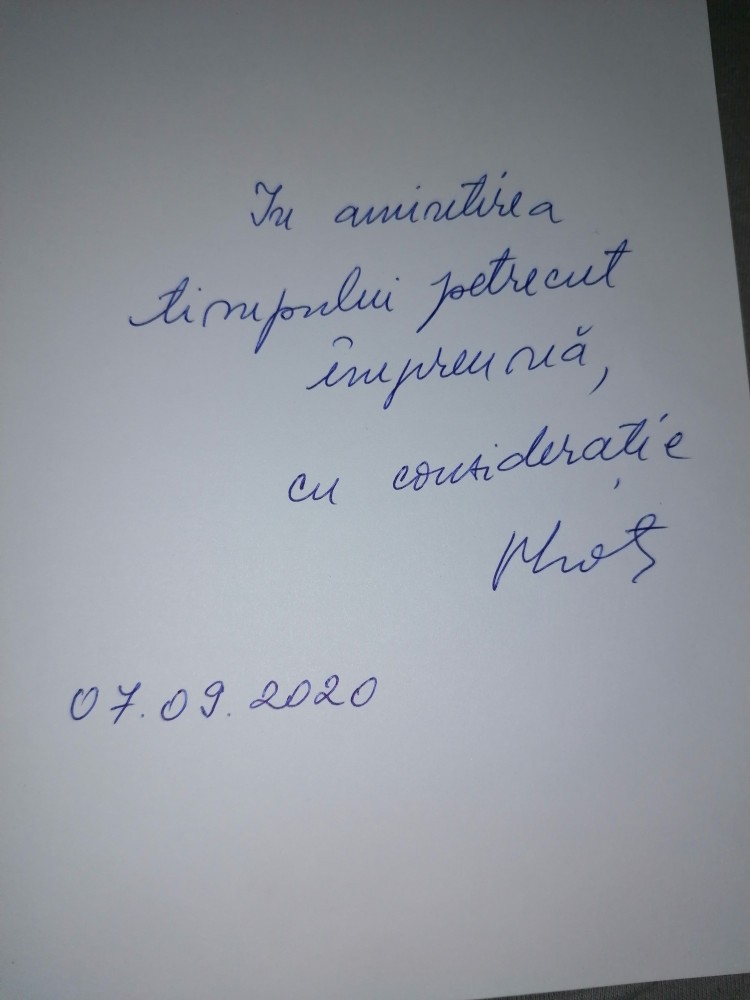 In amintirea
timpului petrecut
împreună,
cu considerație
07.09.2020